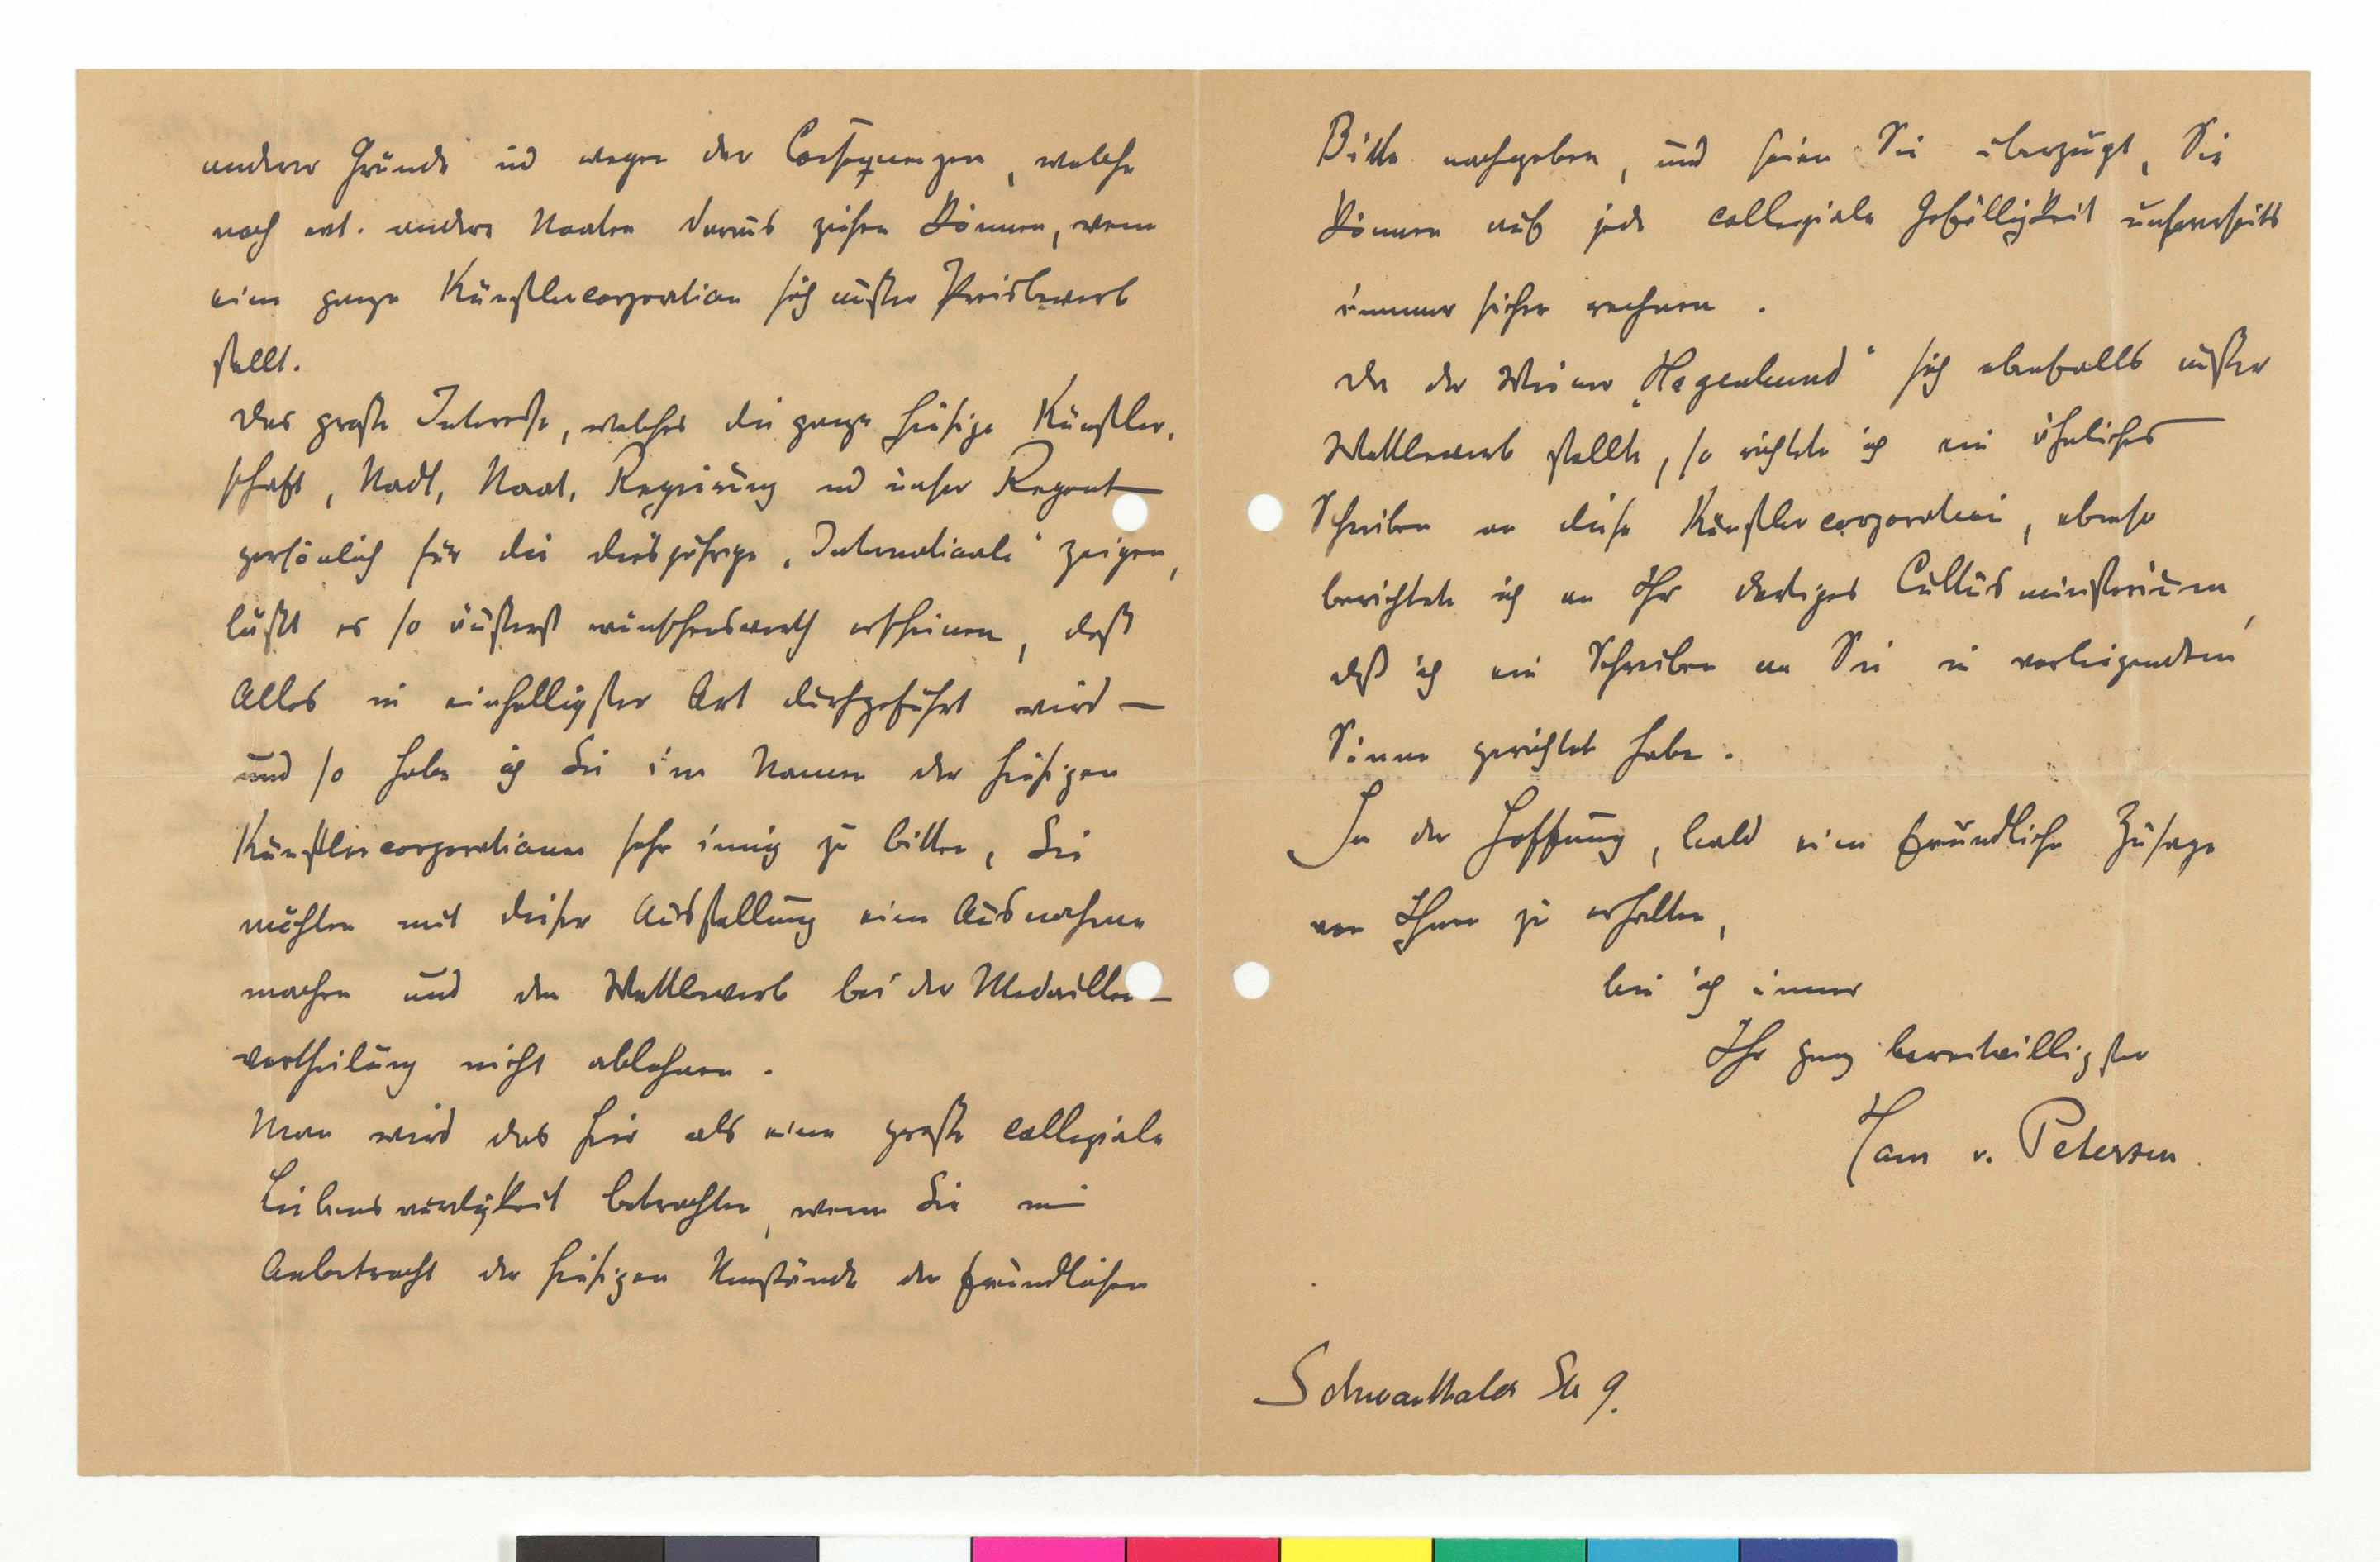 anderer Gründe und wegen der Consequenzen, welche
noch evt. andere Staaten daraus ziehen können, wenn
eine ganze Künstlercorporation sich außer Preisbewerb
stellt.
Das große Interesse, welches die ganze hiesige Künstler-
schaft, Stadt, Staat, Regierung und unser Regent
persönlich für die diesjährige „Internationale“ zeigen,
läßt es so äußerst wünschenswerth erscheinen, daß
Alles in einhelligster Art durchgeführt wird –
und so habe ich Sie im Namen der hiesigen
Künstlercorporationen sehr innig zu bitten, Sie
möchten mit dieser Ausstellung eine Ausnahme
machen und den Wettbewerb bei der Medaillen-
vertheilung nicht ablehnen.
Man wird das hier als eine große collegiale
Liebenswürdigkeit betrachten, wenn Sie in
Anbetracht der hiesigen Umstände der freundlichen
Bitte nachgeben, und seien Sie überzeugt, Sie
können auf jede collegiale Gefälligkeit unsererseits
immer sicher rechnen.
Da der Wiener „Hagenbund“ sich ebenfalls außer
Wettbewerb stellte, so richtete ich ein ähnliches
Schreiben an diese Künstlercorporation, ebenso
berichtete ich an Ihr dortiges Cultusministerium,
daß ich ein Schreiben an Sie in vorliegendem
Sinne gerichtet habe.
In der Hoffnung, bald eine freundliche Zusage
von Ihnen zu erhalten,
bin ich immer
Ihr ganz bereitwilligster
Hans v. Petersen.
Schwanthaler Str 9.